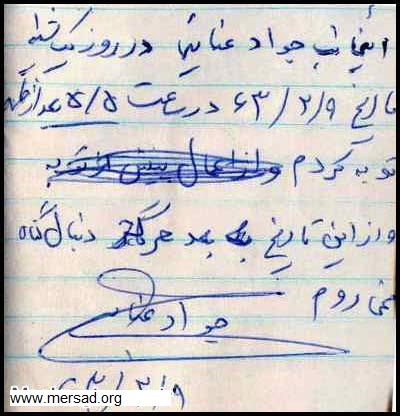 اینجانب جواد عنائیی در روز یکشنبه
تاریخ ۶۳/۲/۹ در ساعت ۵/۵ بعدازظهر
توبه کردم
و از این تاریخ به بعد هرگز دنبال گناه
نمی روم
جواد عنائی
۶۳/۲/۹
www.mersad.org